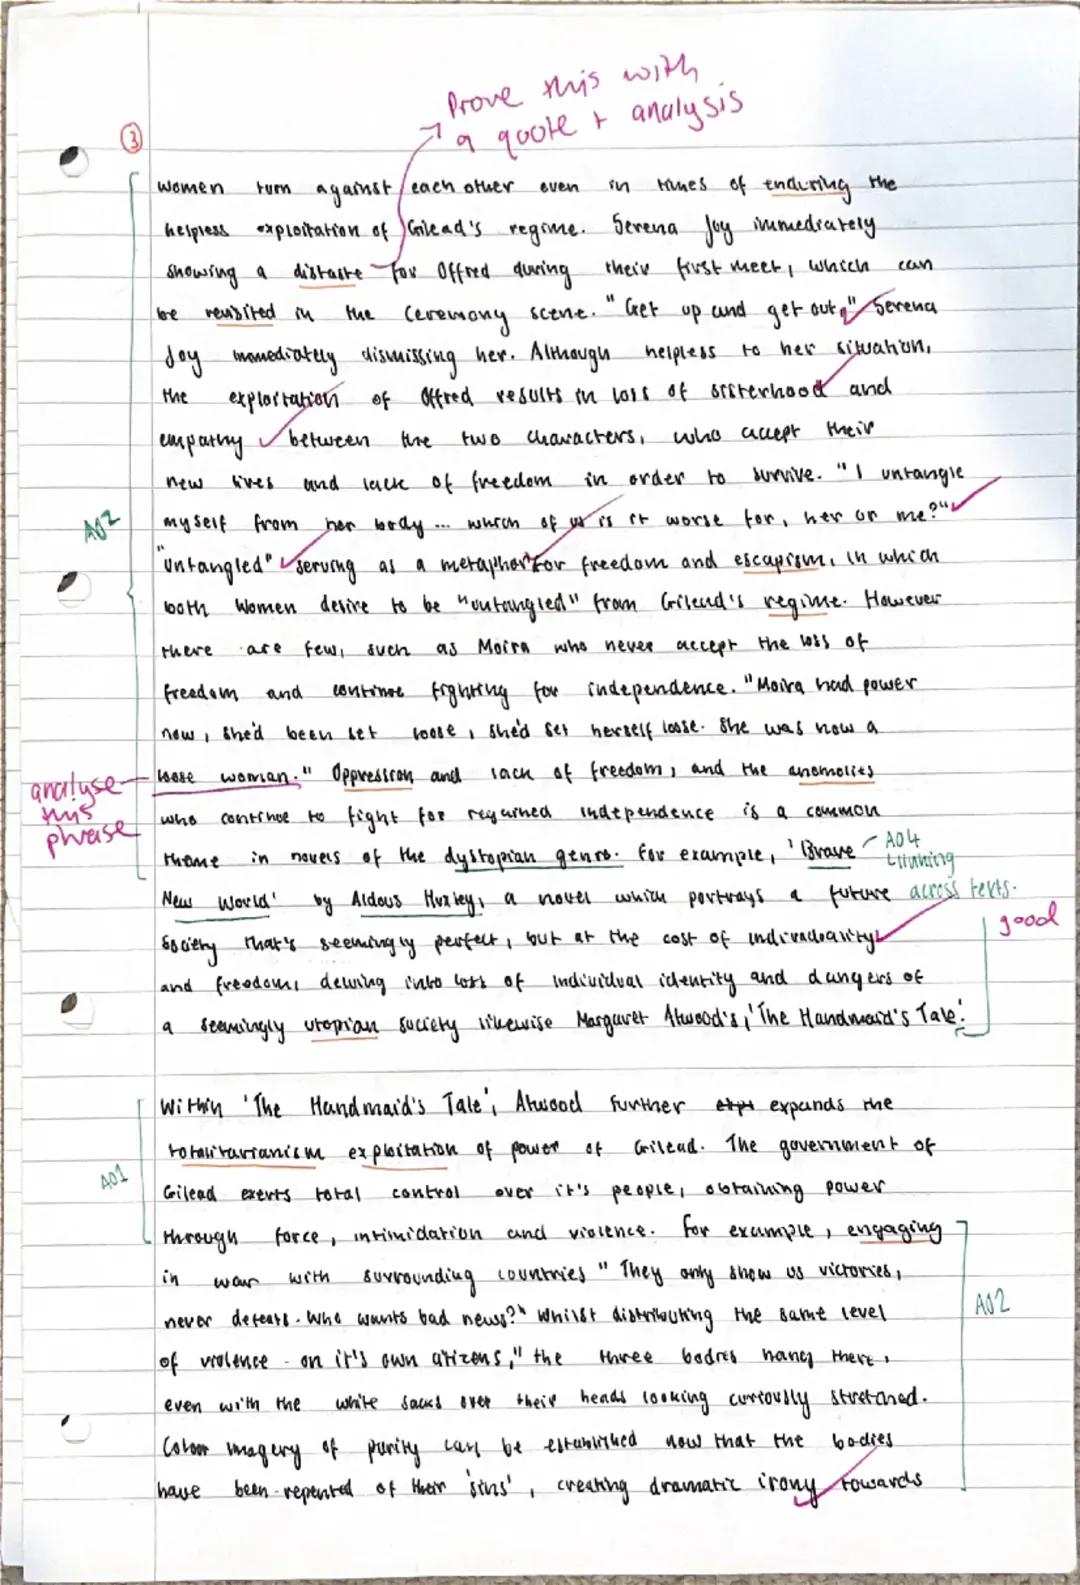 Prove this with
a quote + analysis
3
Women turn against each other even in times of enduring the
helpless exploitation of Gilead's regime. Serena Joy immediately
showing a distaste for Offred during their first meet, which can
be revisited in the Ceremony scene. "Get up and get out," Serena
Joy immediately dismissing her. Although helpless to her situation,
the exploitation of Offred results in loss of sisterhood and
empathy between the two characters, who accept their
new lives and lack of freedom in order to survive. "I untangle
AO2
myself from her body ... which of us is it worse for, her or me?"
"Untangled" serving as a metaphor for freedom and escapism, in which
both women desire to be "untangled" from Gilead's regime. However
there are few, such as Moira who never accept the loss of
freedom and continue fighting for independence. "Moira had power
now, she'd been set loose, she'd set herself loose. She was now a
analyse this phrase
loose woman." Oppression and lack of freedom, and the anomolies
who continue to fight for regained independence is a common
theme in novels of the dystopian genre. For example, 'Brave
AO4
linning
across texts.
New World' by Aldous Huxley, a novel which portrays a future
good
society that's seemingly perfect, but at the cost of individuality
and freedom, delving into loss of individual identity and dangers of
a seemingly utopian society likewise Margaret Atwood's, 'The Handmaid's Tale'.
Within 'The Handmaid's Tale', Atwood further expands the
totalitarianism exploitation of power of Gilead. The government of
AO1
Gilead exerts total control over it's people, obtaining power
through force, intimidation and violence. For example, engaging
in war with surrounding countries "They only show us victories,
AO2
never defeats. Who wants bad news?" Whilst distributing the same level
of violence on it's own citizens," the three bodies hang there,
even with the white sacks over their heads looking curiously stretched.
Colour imagery of purity can be established now that the bodies
have been repented of their 'sins', creating dramatic irony towards